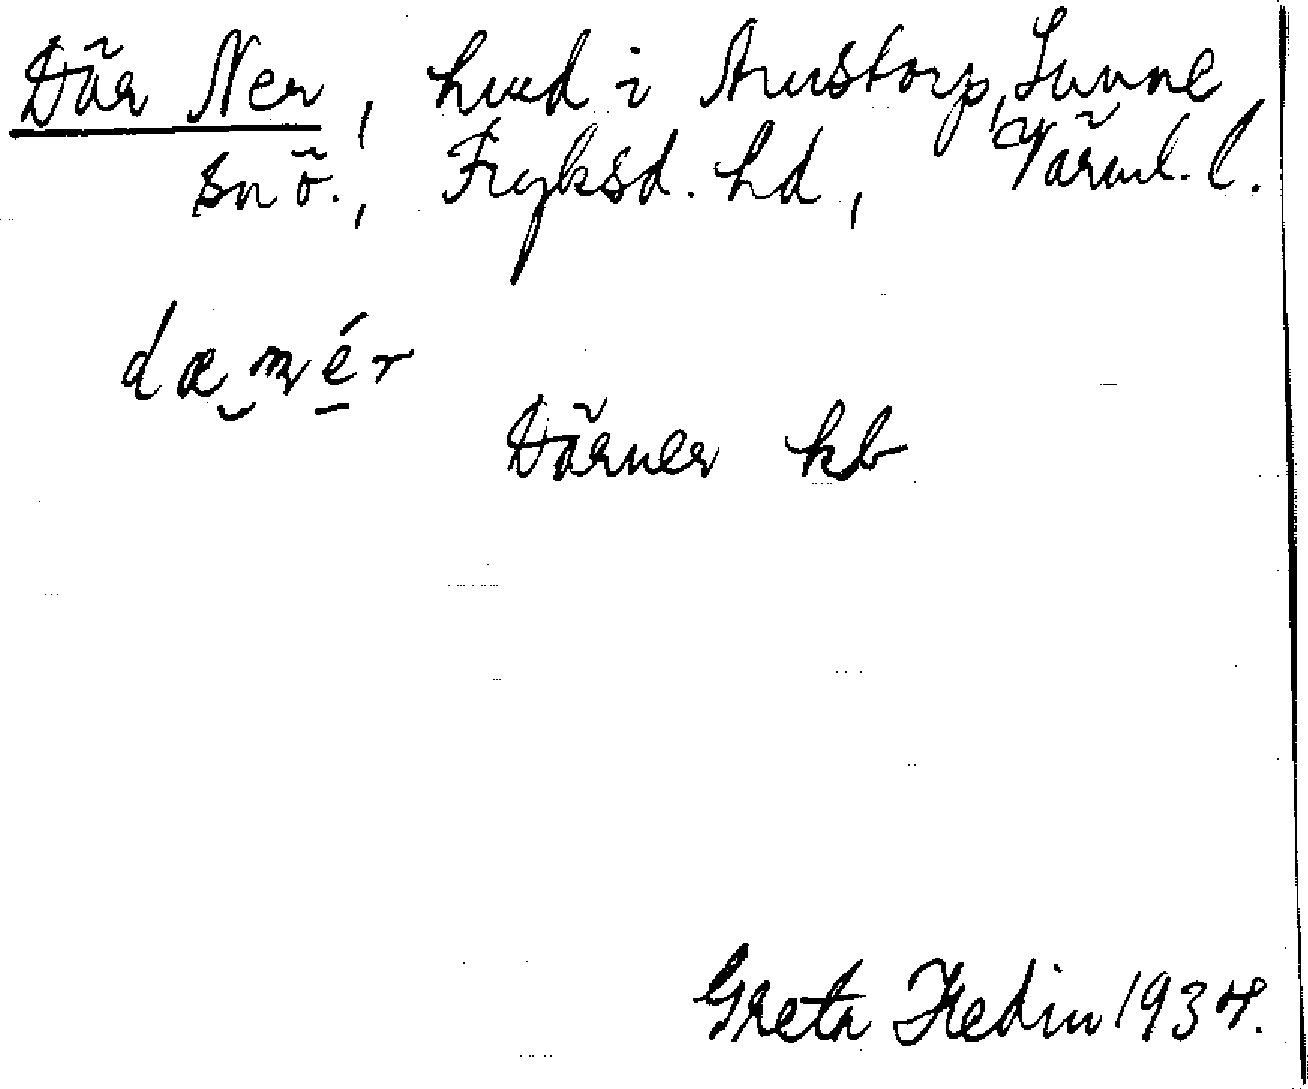 Där Ner, hmd i Austorp, Sunne
sn ö., Fryksd. hd, Värml. l.
dæṇér
Därner kb
Greta Hedin 1934.